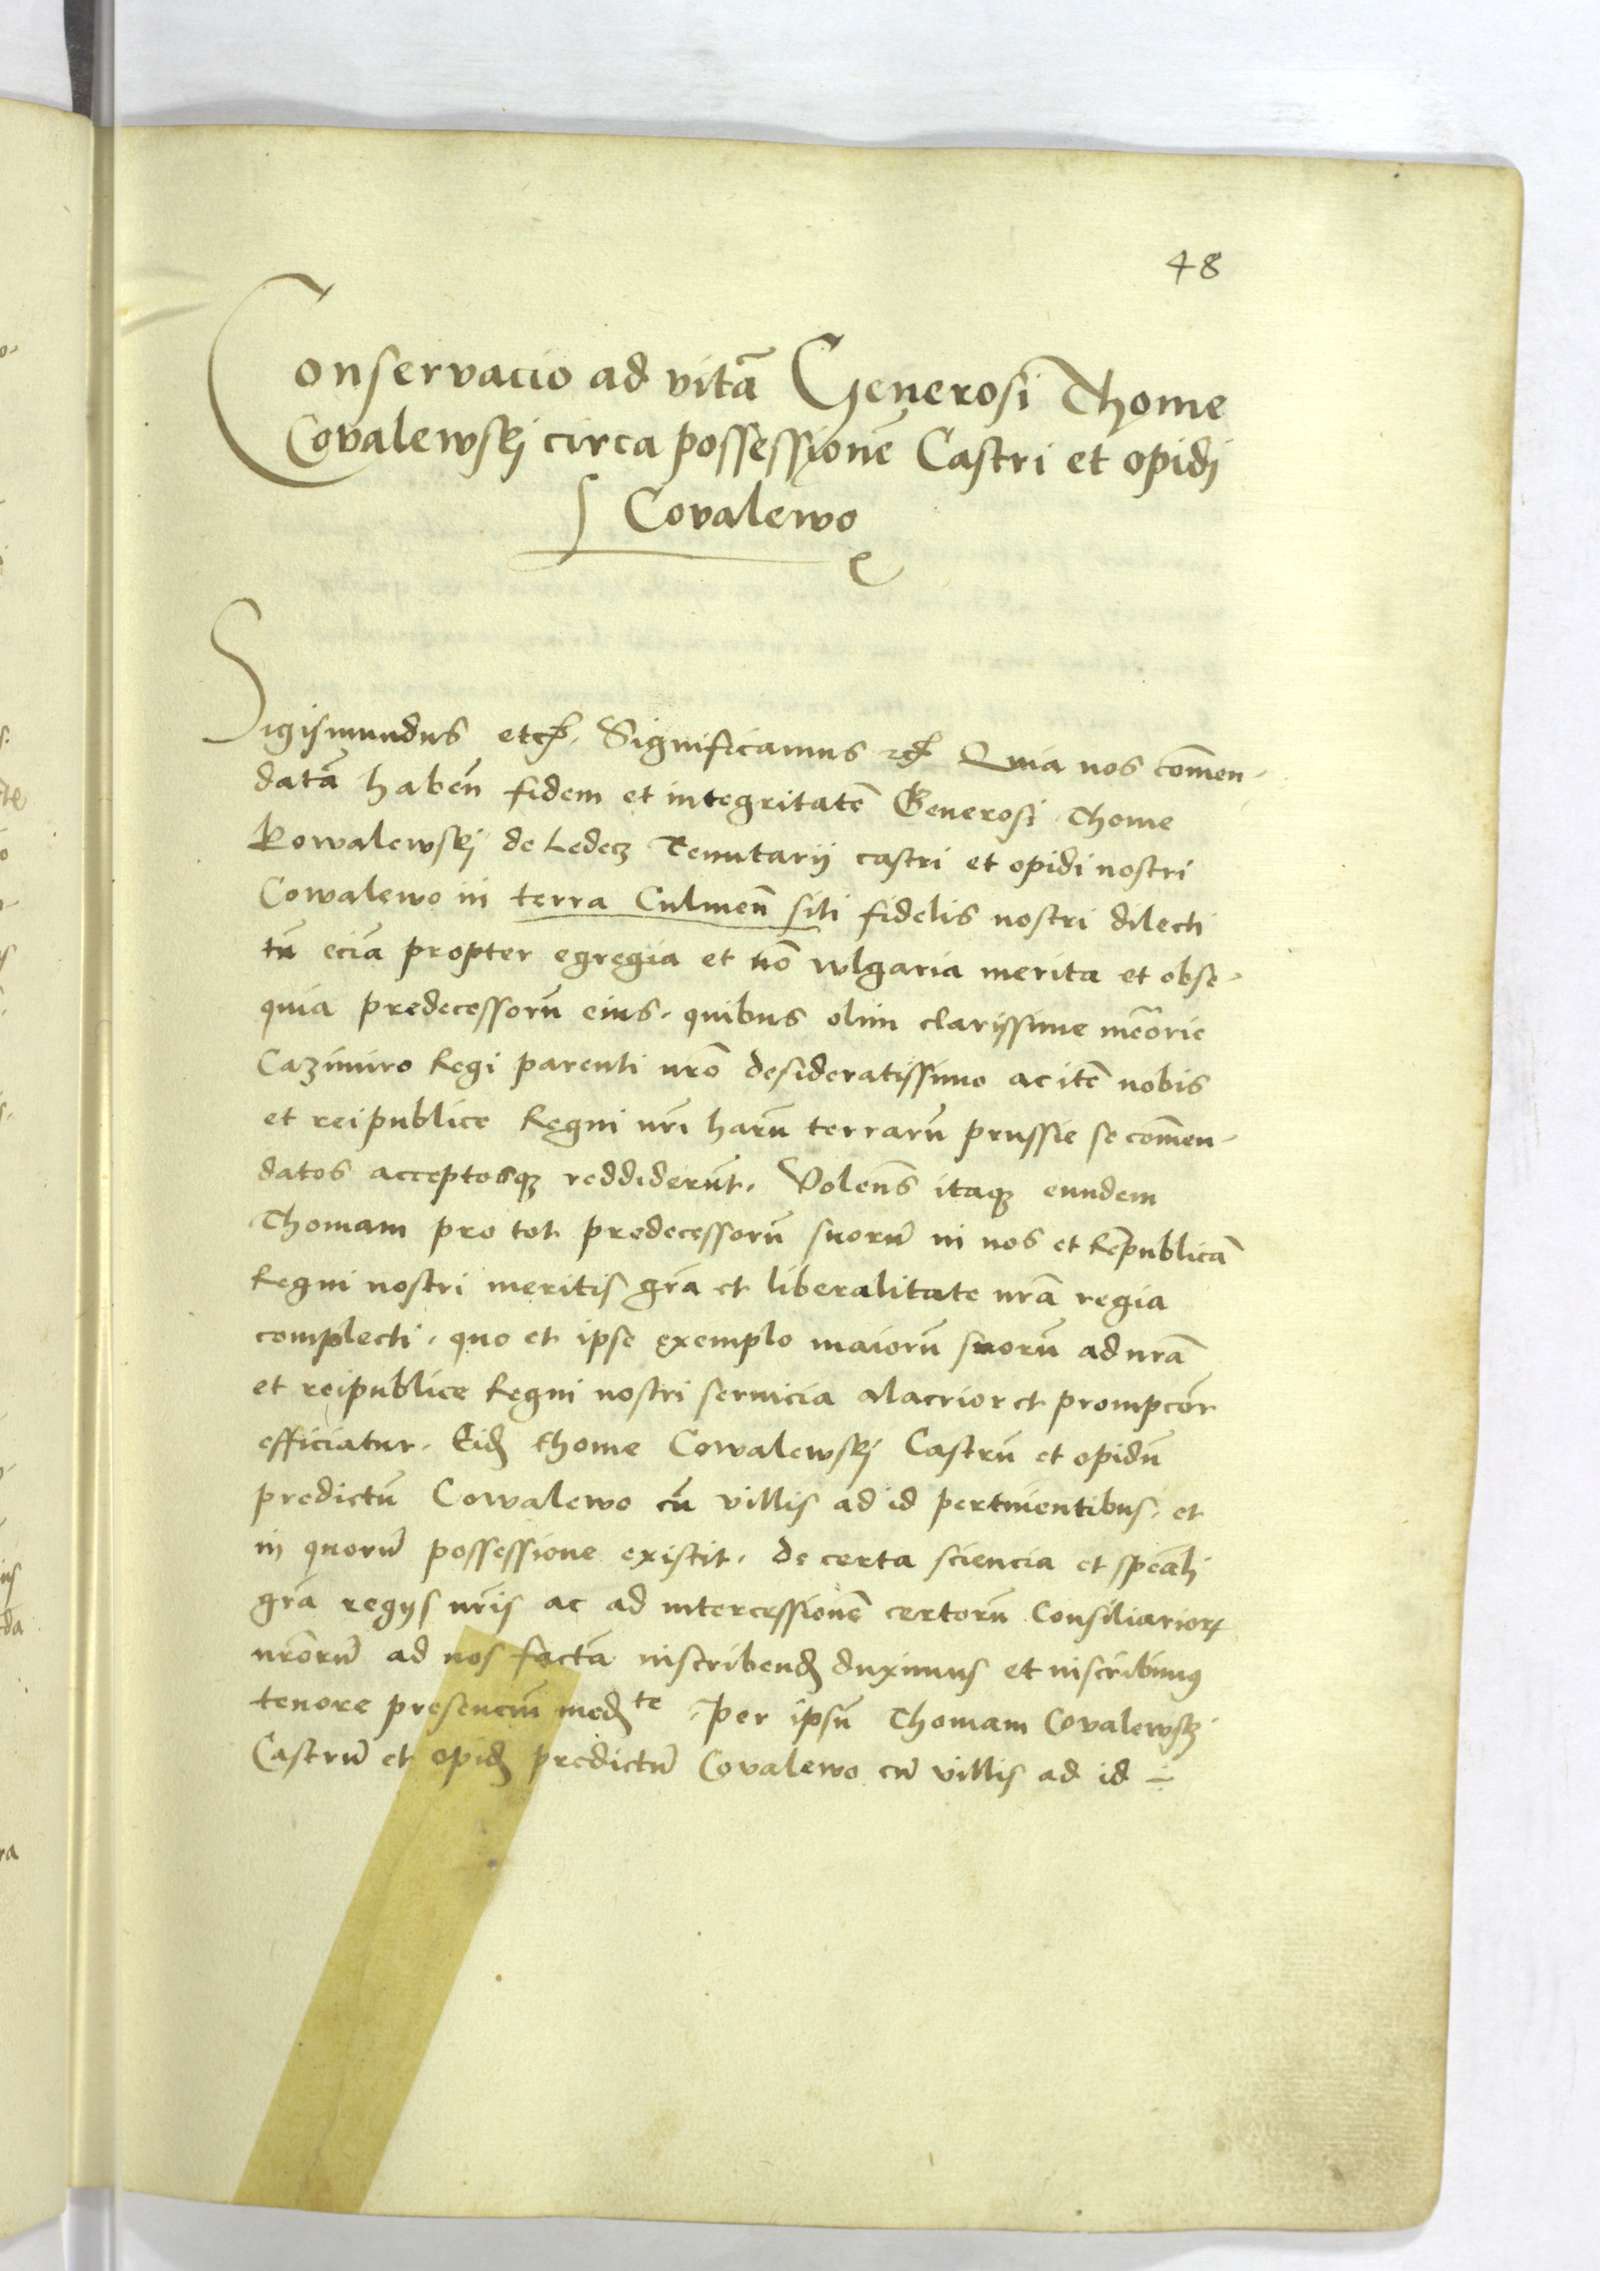 48
Conservacio ad vitā Generosi Thome
Covalewskj circa possessionē Castri et opidj
Covalewo
Sigismundus etc. Significamus etc. Quia nos com̄en-
datā haben̄ fidem et integritatē Generosi Thome
Kowalewskj de Ledecz Tenutarij castri et opidi nostri
Cowalewo in terra Culmen̄ siti fidelis nostri dilecti
tū eciā propter egregia et nō wlgaria merita et obse-
quia predecessorū eius. quibus olim clarissime mēorie
Cazimiro Regi parenti nrō desideratissimo ac itē nobis
et reipublice Regni nrī harū terrarū prussie se com̄en-
datos acceptosqȝ reddiderūt. Volen̄s itaqȝ eundem
Thomam pro tot predecessorū suorū in nos et Rēpublicā
Regni nostri meritis grā et liberalitate nrā regia
complecti. quo et ipse exemplo maiorū suorū ad nrā
et reipublice Regni nostri servicia alacrior et prompcōr
efficiatur. Eid̄ thome Cowalewskj Castrū et opidū
predictū Cowalewo cū villis ad id pertinentibus. et
in quorū possessione existit. de certa sciencia et speāli
grā regijs nrīs ac ad intercessionē certorū Consiliarioꝝ
nrōrū ad nos factā inscribend̄ duximus et inscribimꝰ
tenore presenciū med^te. Per ipsū Thomam Covalewskj
Castrū et opid̄ predictū Covalewo cū villis ad id